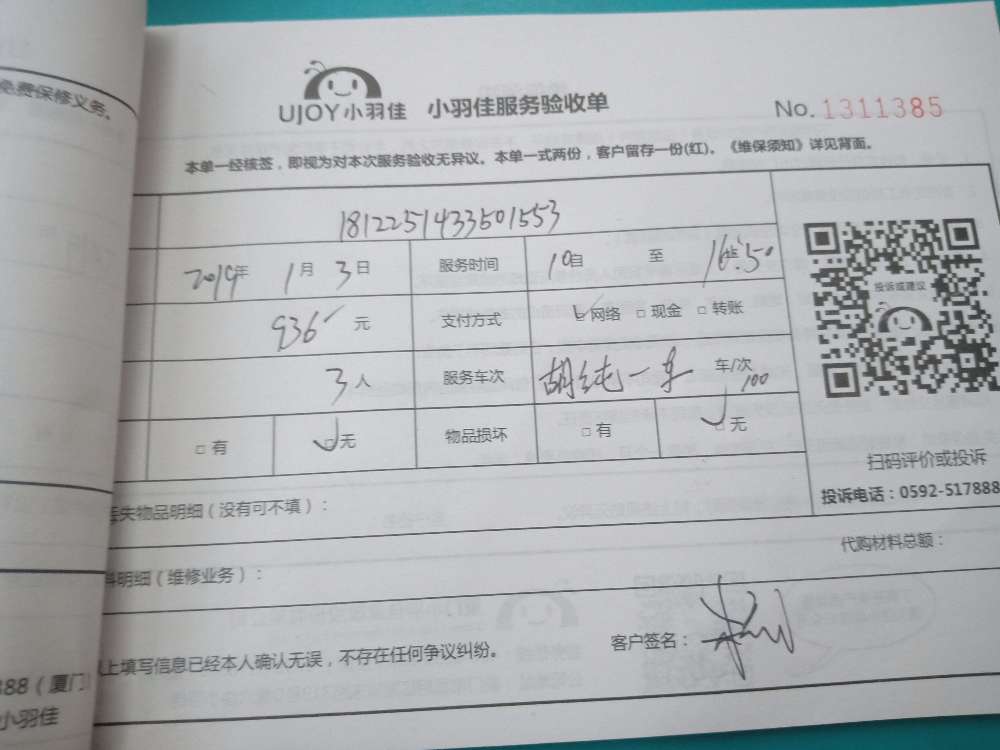 免费保修义务。
UJOY小羽佳 小羽佳服务验收单
No. 1311385
本单一经核签，即视为对本次服务验收无异议。本单一式两份，客户留存一份(红)。《维保须知》详见背面。
1812251433501553
2019年 1月 3日 服务时间 10自 至 16:50
936 元 支付方式 ☑网络 □现金 □转账
3人 服务车次 一车 车/次
100
□有 ☑无 物品损坏 □有 ☑无
投诉或建议
扫码评价或投诉
投诉电话：0592-517888
丢失物品明细（没有可不填）：
代购材料总额：
料明细（维修业务）：
以上填写信息已经本人确认无误，不存在任何争议纠纷。
客户签名：
888（厦门）
小羽佳